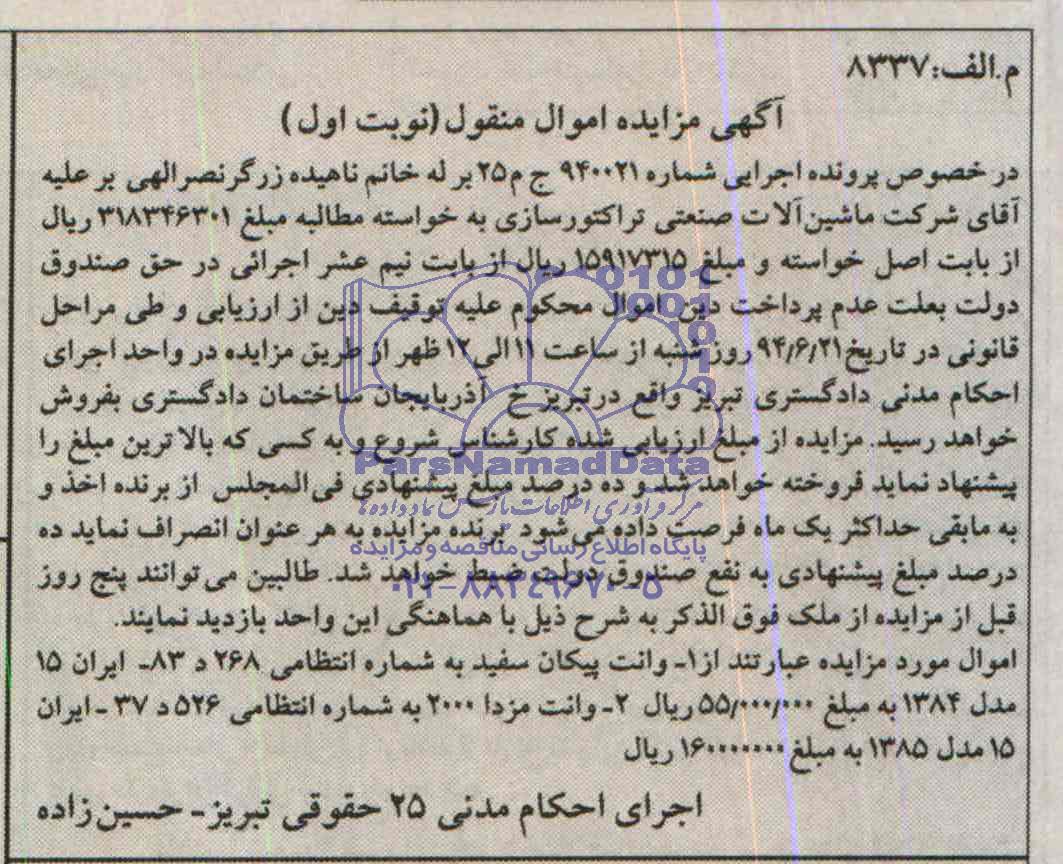 م.الف: ۸۳۳۷
آگهی مزایده اموال منقول (نوبت اول)
در خصوص پرونده اجرایی شماره ۹۴۰۰۲۱ ج م۲۵ بر له خانم ناهیده زرگرنصرالهی بر علیه
آقای شرکت ماشین‌آلات صنعتی تراکتورسازی به خواسته مطالبه مبلغ ۳۱۸۳۴۶۳۰۱ ریال
از بابت اصل خواسته و مبلغ ۱۵۹۱۷۳۱۵ ریال از بابت نیم عشر اجرائی در حق صندوق
دولت بعلت عدم پرداخت دین اموال محکوم علیه توقیف دین از ارزیابی و طی مراحل
قانونی در تاریخ ۹۴/۶/۲۱ روز شنبه از ساعت ۱۱ الی ۱۲ ظهر از طریق مزایده در واحد اجرای
احکام مدنی دادگستری تبریز واقع درتبریز خ آذربایجان ساختمان دادگستری بفروش
خواهد رسید. مزایده از مبلغ ارزیابی شده کارشناس شروع و به کسی که بالاترین مبلغ را
پیشنهاد نماید فروخته خواهد شد و ده درصد مبلغ پیشنهادی فی‌المجلس از برنده اخذ و
به مابقی حداکثر یک ماه فرصت داده می‌شود برنده مزایده به هر عنوان انصراف نماید ده
درصد مبلغ پیشنهادی به نفع صندوق دولت ضبط خواهد شد. طالبین می‌توانند پنج روز
قبل از مزایده از ملک فوق الذکر به شرح ذیل با هماهنگی این واحد بازدید نمایند.
اموال مورد مزایده عبارتند از۱- وانت پیکان سفید به شماره انتظامی ۲۶۸ د ۸۳- ایران ۱۵
مدل ۱۳۸۴ به مبلغ ۵۵/۰۰۰/۰۰۰ ریال ۲- وانت مزدا ۲۰۰۰ به شماره انتظامی ۵۲۶ د ۳۷ -ایران
۱۵ مدل ۱۳۸۵ به مبلغ ۱۶۰۰۰۰۰۰۰ ریال
اجرای احکام مدنی ۲۵ حقوقی تبریز- حسین‌زاده
ParsNamadData
مرکز فرآوری اطلاعات پارس نماد داده ها
پایگاه اطلاع رسانی مناقصه و مزایده
۰۲۱-۸۸۳۴۹۶۷۰-۵